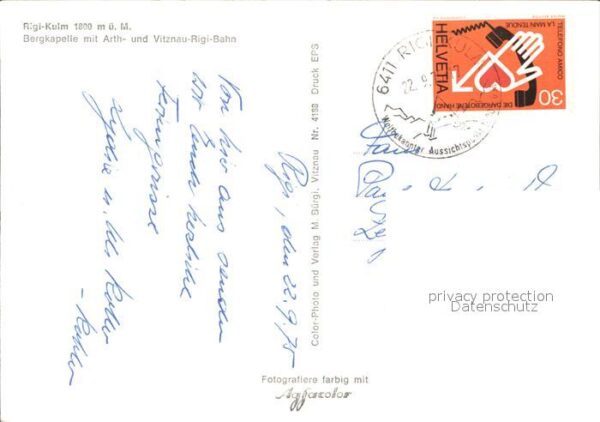 Rigi-Kulm 1800 m ü. M.
Bergkapelle mit Arth- und Vitznau-Rigi-Bahn
Rigi, den 22.9.75
Von hier aus senden
wir Euch herzliche
Feriengrüsse
Color-Photo und Verlag M. Bürgi, Vitznau Nr. 4198 Druck EPS
Fotografiere farbig mit
Agfacolor
6411 RIGI KULM
22.9.7
Weltbekannter Aussichtsp
HELVETIA
30
TELEFONO AMICO
LA MAIN TENDUE
DIE DARGEBOTENE HAND
privacy protection
Datenschutz